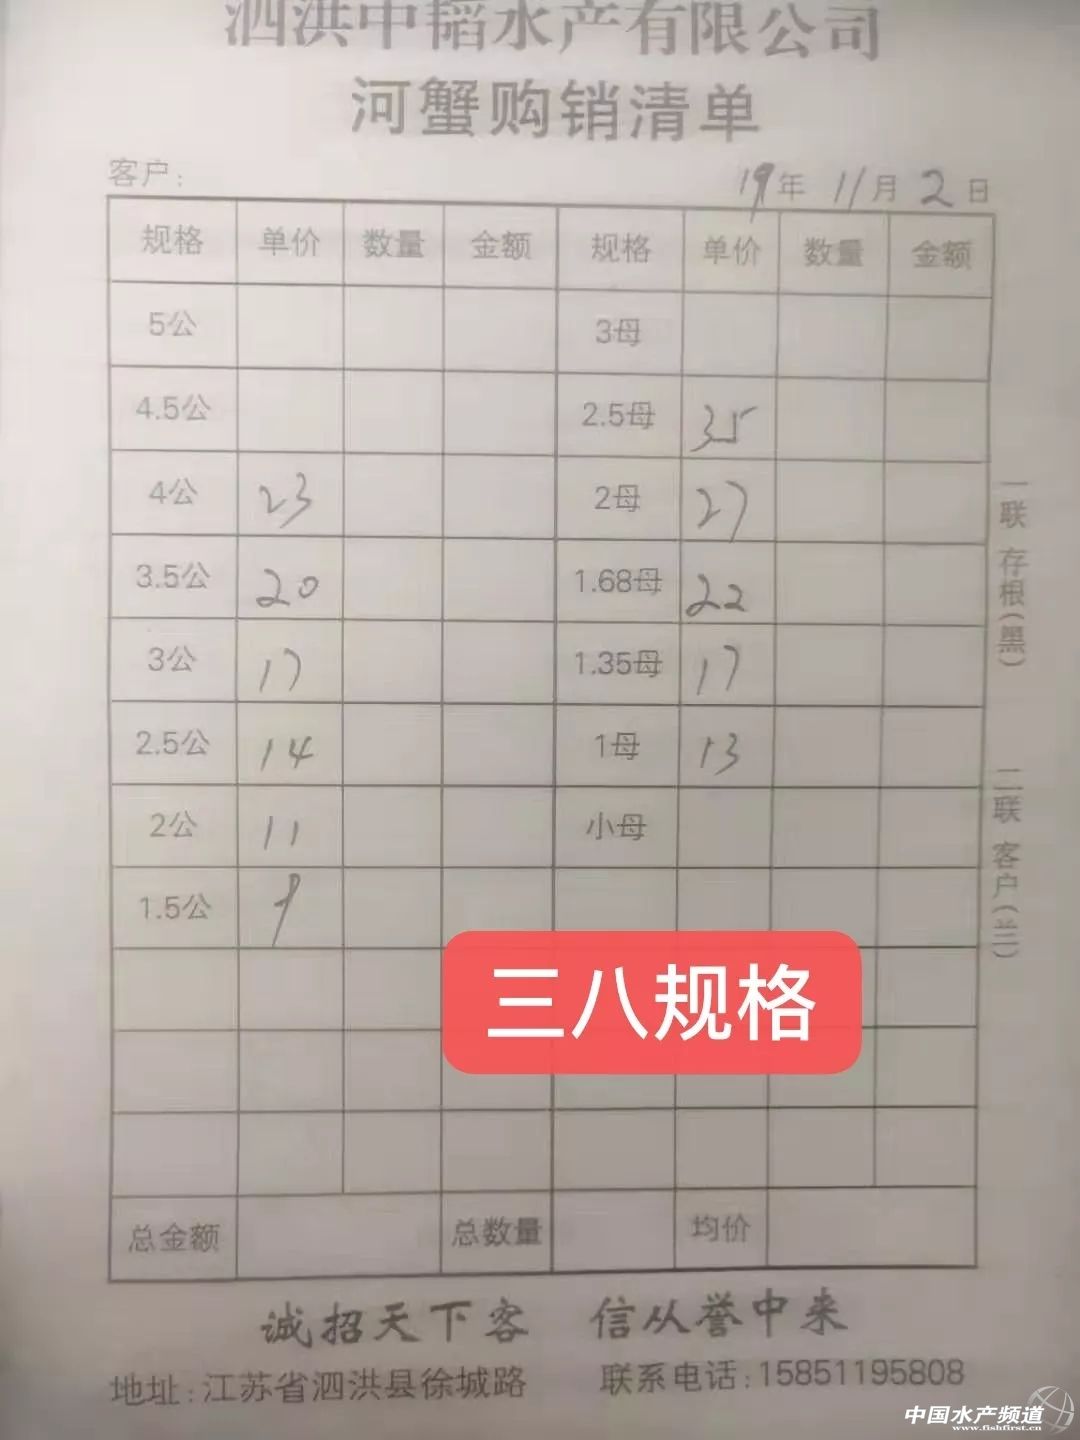 泗洪中韬水产有限公司
河蟹购销清单
客户: 19年 11月 2日
规格 单价 数量 金额 规格 单价 数量 金额
5公 3母
4.5公 2.5母 35
4公 23 2母 27
3.5公 20 1.68母 22
3公 17 1.35母 17
2.5公 14 1母 13
2公 11 小母
1.5公 9
三八规格
总金额 总数量 均价
诚招天下客 信从誉中来
地址:江苏省泗洪县徐城路 联系电话:15851195808
一联 存根(黑)
二联 客户(兰)
中国水产频道
www.fishfirst.cn